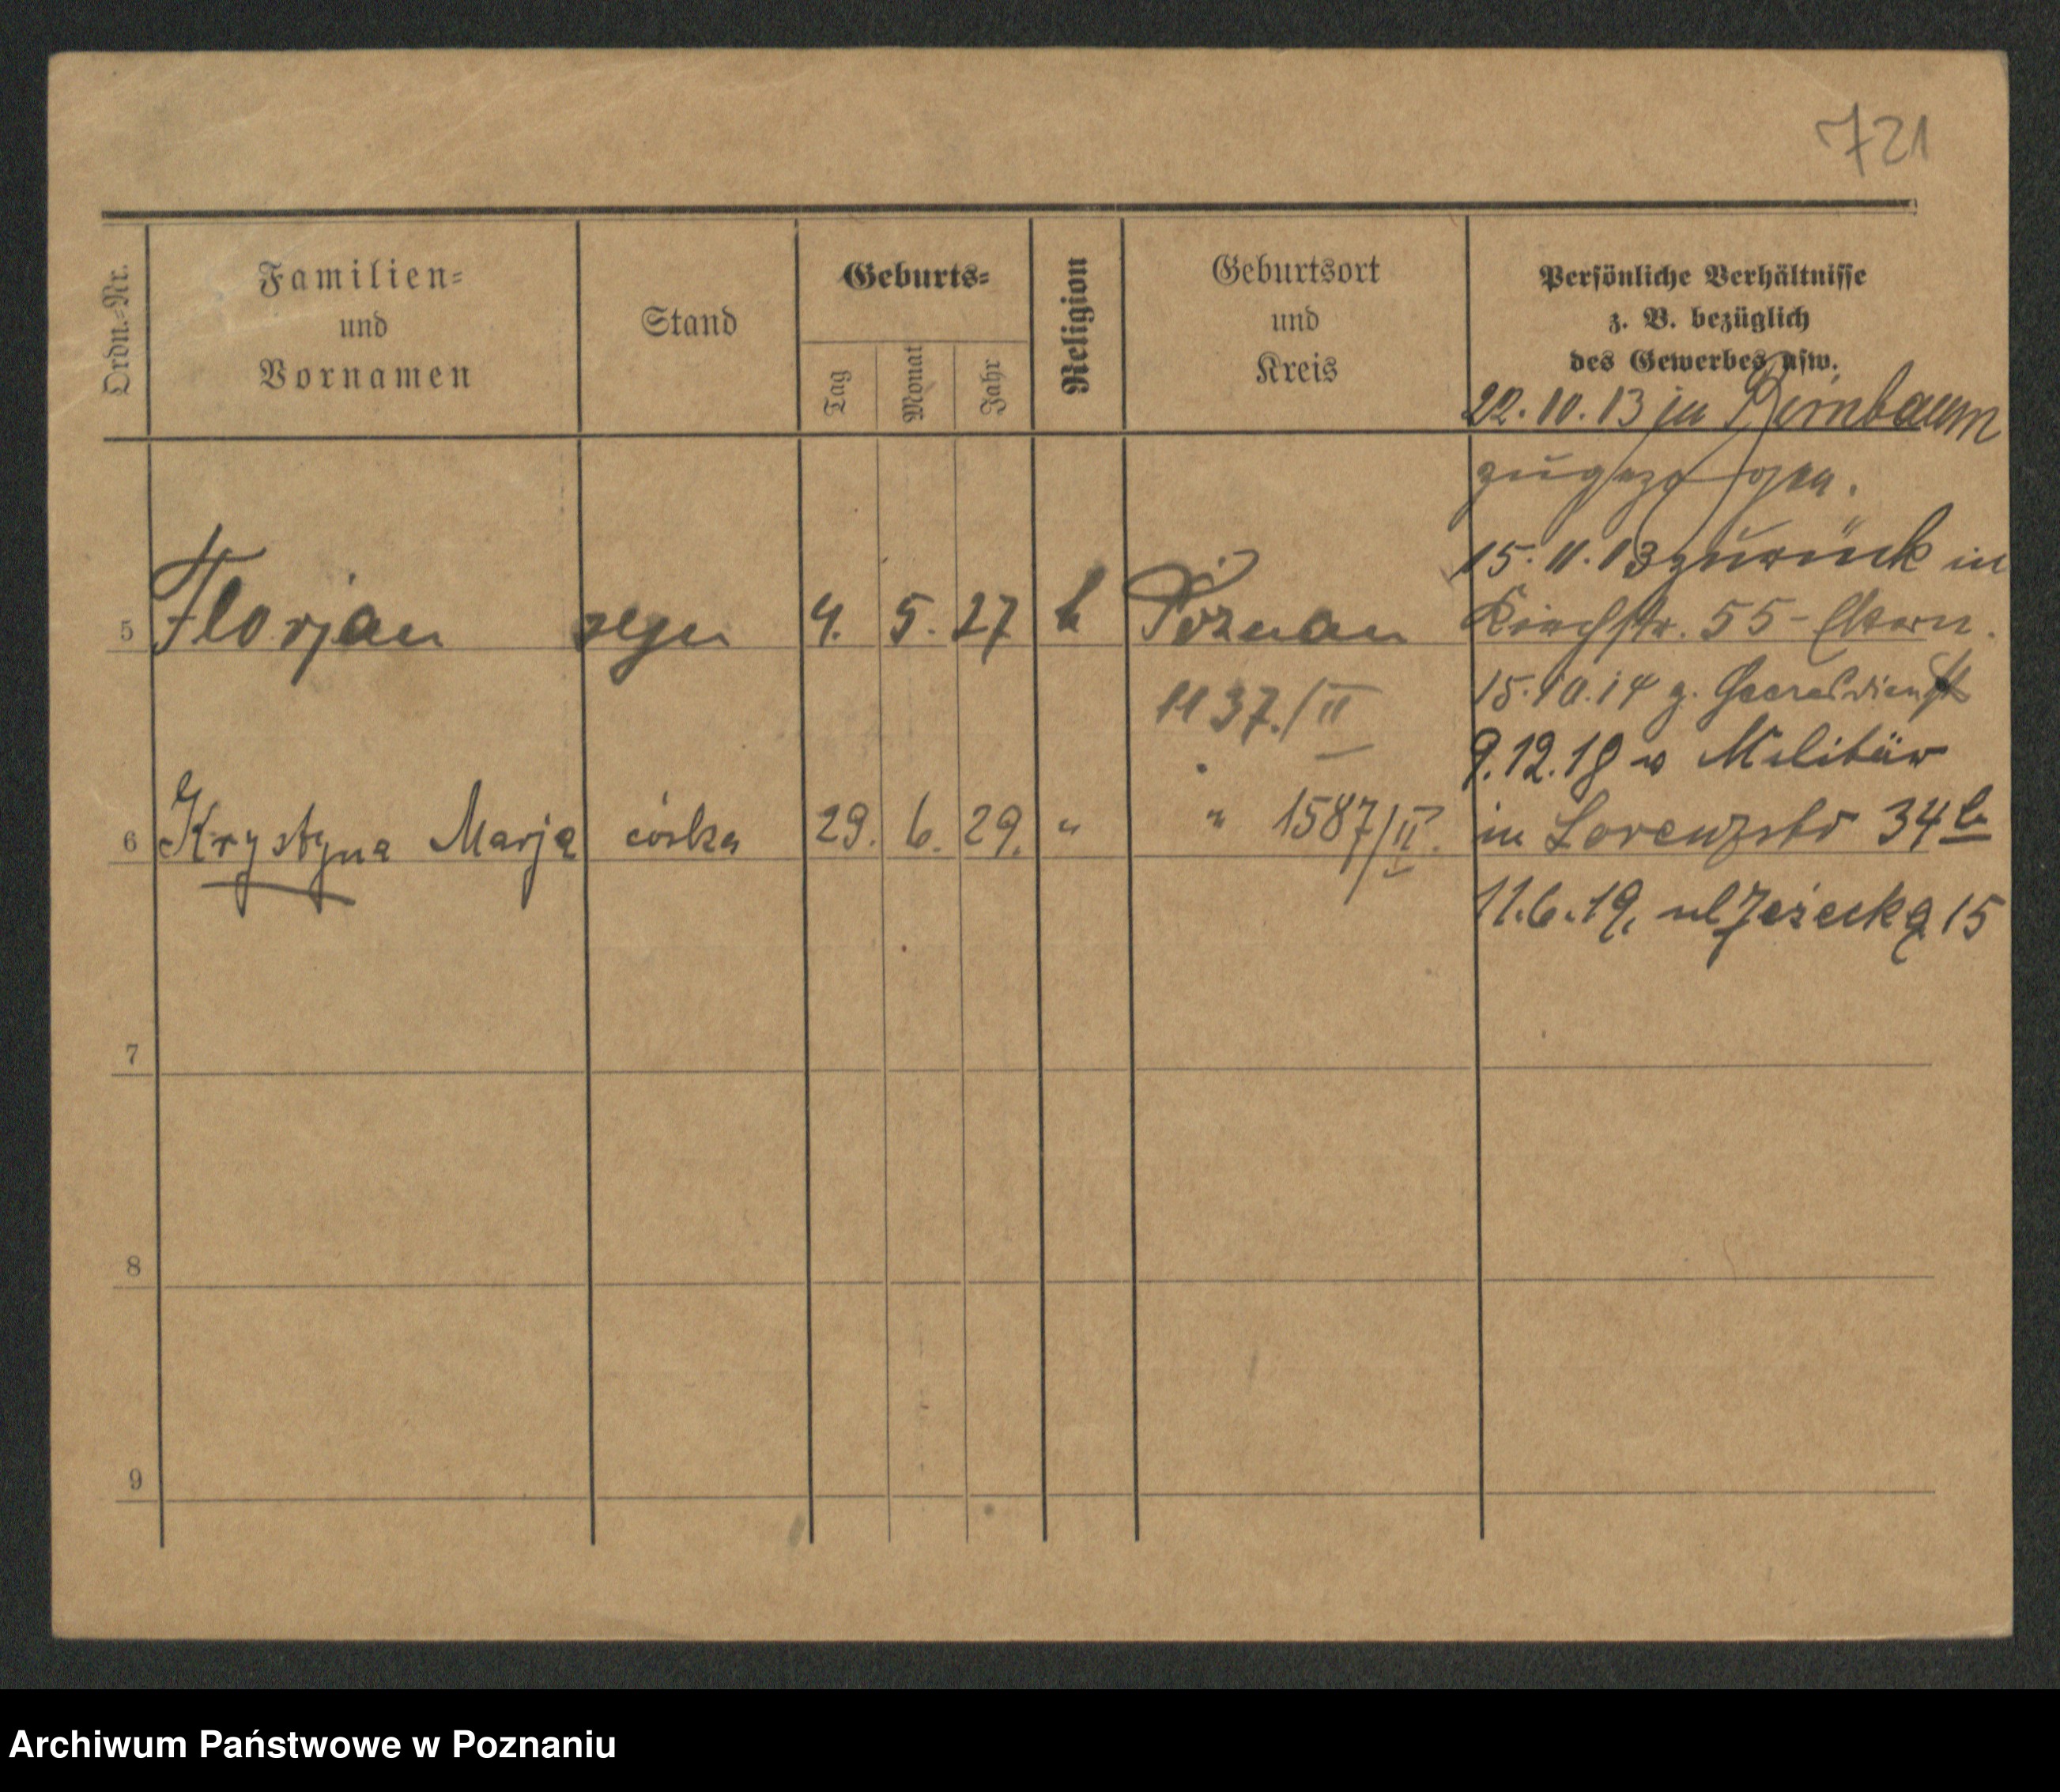 721
Ordn.-Nr.
Familien-
und
Vornamen
Stand
Geburts-
Tag
Monat
Jahr
Religion
Geburtsort
und
Kreis
Persönliche Verhältnisse
z. B. bezüglich
des Gewerbes usw.
22.10.13 in Birnbaum
zugezogen.
15.11.13 zurück in
5 Florjan 4. 5. 27 k Poznan Kirchstr. 55 - Eltern.
1137./II 15.10.14 z. Heeresdienst
9.12.18 v Militär
6 Krystyna Marja córka 29. 6. 29. " " 1587/II. in Lorenzstr 34 b
11.6.19. ul Jeżycka 15
7
8
9
Archiwum Państwowe w Poznaniu